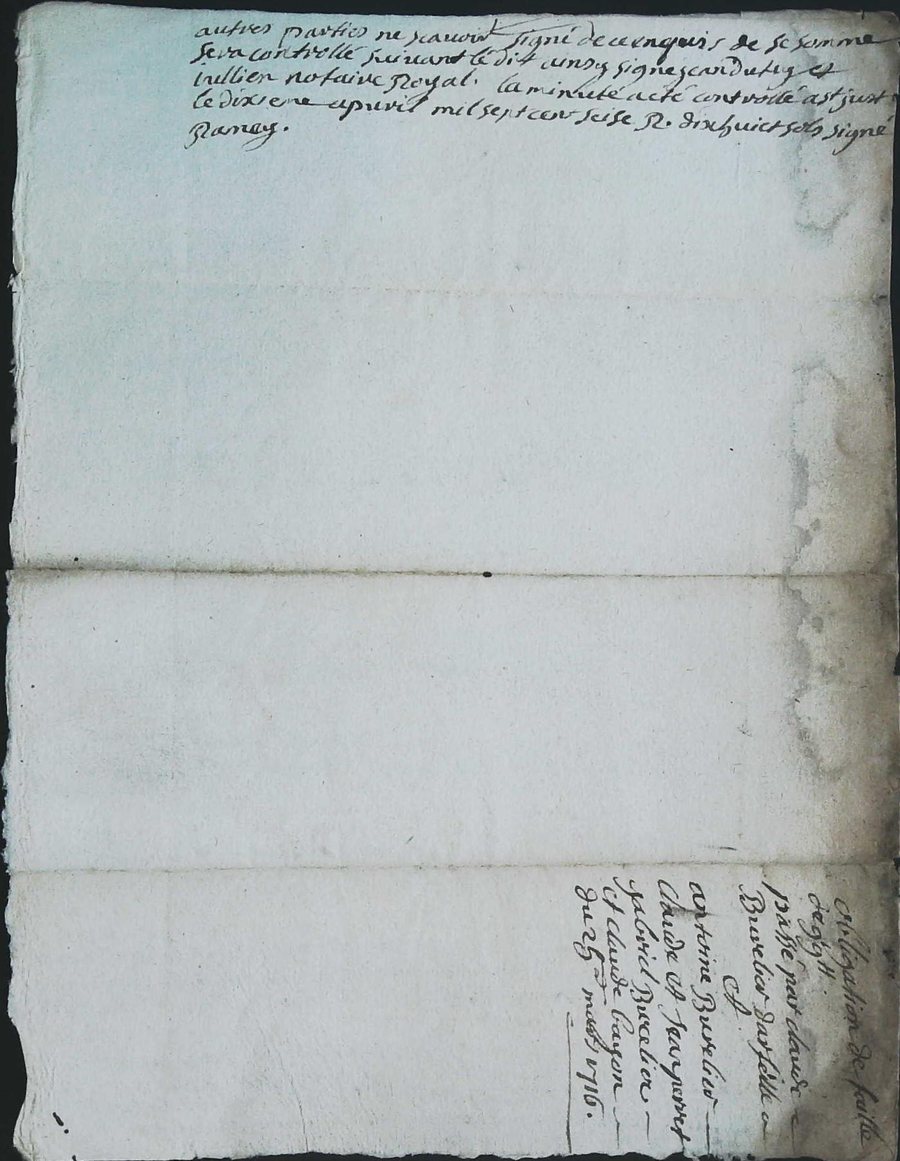 autres parties ne scavoir signé de ce enquis de se somme
sera controllé suivant le dit ainsy signes et
Jullien notaire Royal. la minuté a été controllé a st just
le dixiene apuril mil sept cent seise R. dix huict sols signé
Ramey.
obligation de
passé par claude
Burelier
et
antoine Burelier
claude et Jean perret
gabriel Burelier
et claude bayon
du 25e mars 1716.